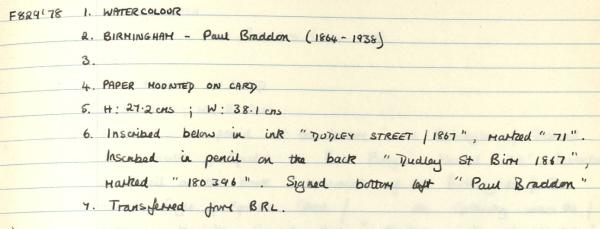 F829'78 1. WATERCOLOUR
2. BIRMINGHAM - Paul Braddon (1864-1938)
3.
4. PAPER MOUNTED ON CARD
5. H: 27.2 cms ; W: 38.1 cms
6. Inscribed below in ink "DUDLEY STREET / 1867", marked "71".
Inscribed in pencil on the back "Dudley St Birm 1867",
marked "180396". Signed bottom left "Paul Braddon"
7. Transferred from BRL.